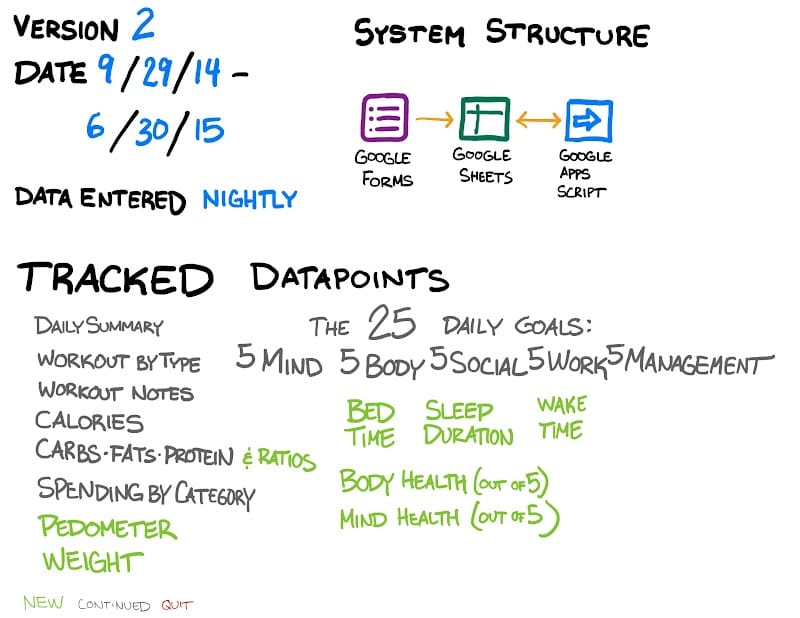 VERSION 2
DATE 9/29/14 -
6/30/15
DATA ENTERED NIGHTLY
SYSTEM STRUCTURE
GOOGLE
FORMS
GOOGLE
SHEETS
GOOGLE
APPS
SCRIPT
TRACKED DATAPOINTS
DAILY SUMMARY
WORKOUT BY TYPE
WORKOUT NOTES
CALORIES
CARBS·FATS·PROTEIN & RATIOS
SPENDING BY CATEGORY
PEDOMETER
WEIGHT
THE 25 DAILY GOALS:
5 MIND 5 BODY 5 SOCIAL 5 WORK 5 MANAGEMENT
BED
TIME
SLEEP
DURATION
WAKE
TIME
BODY HEALTH (OUT OF 5)
MIND HEALTH (OUT OF 5)
NEW CONTINUED QUIT